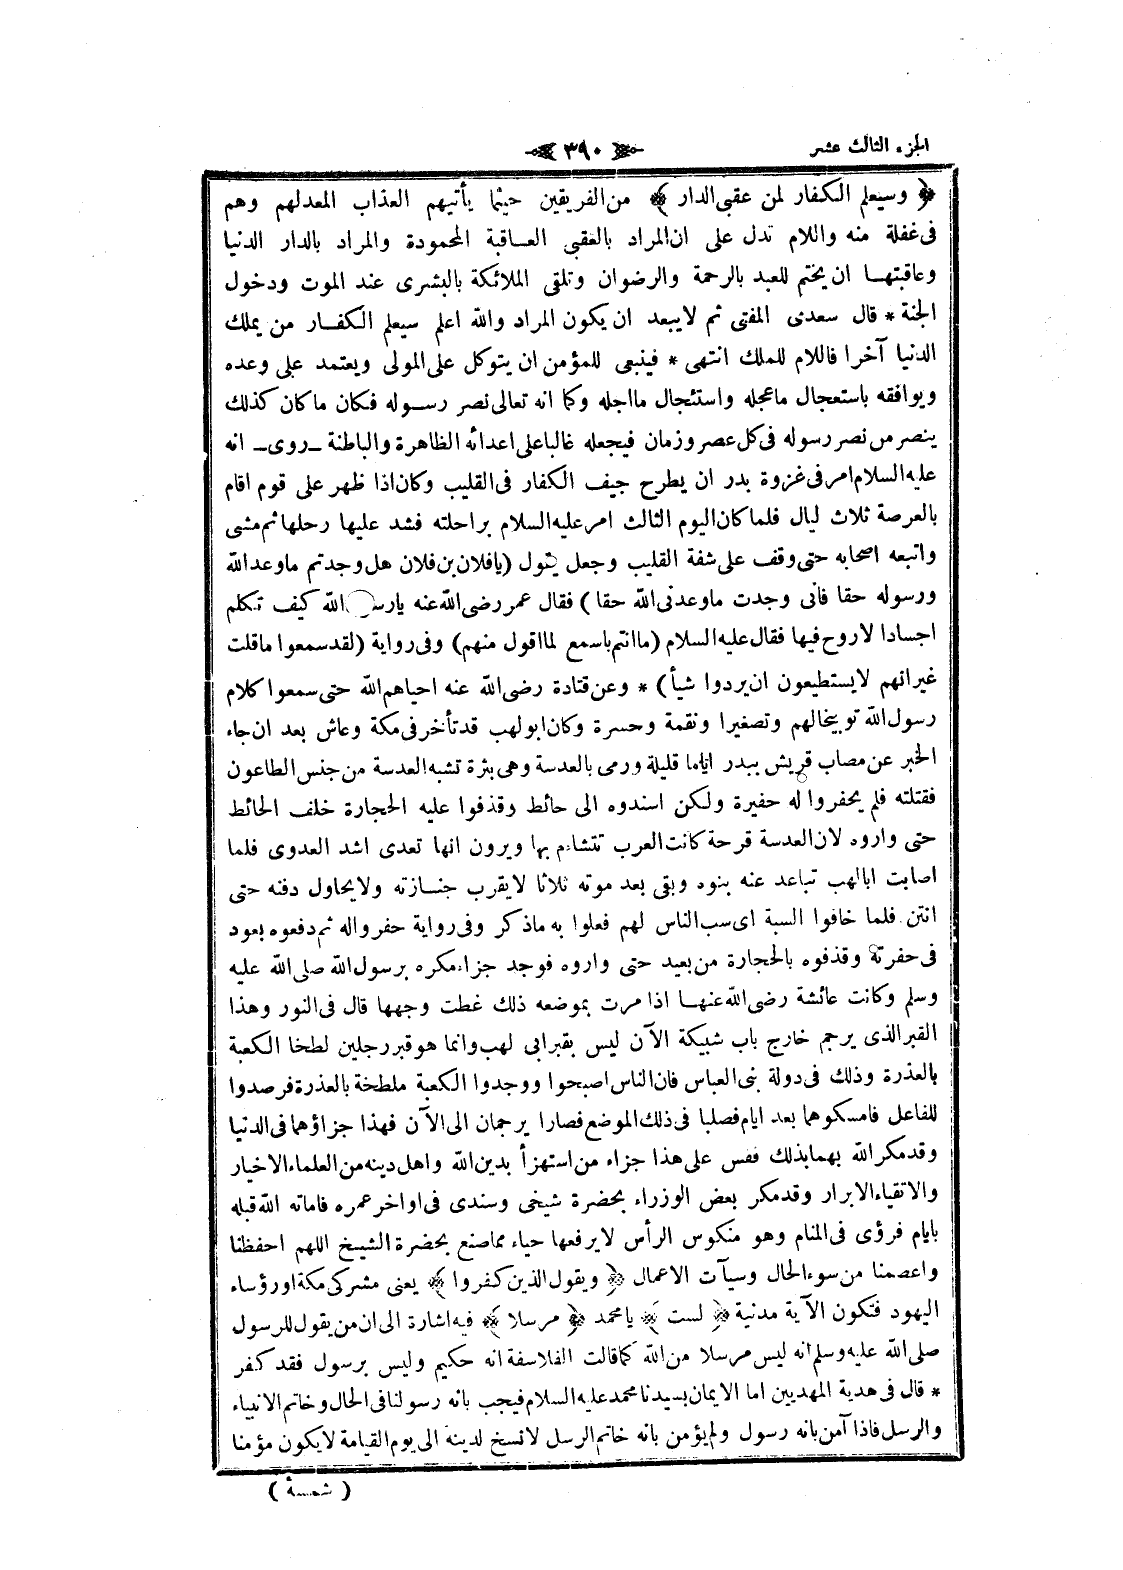 الجزء الثالث عشر
٣٩٠
﴿ وسيعلم الكفار لمن عقبى الدار ﴾ من الفريقين حيثما يأتيهم العذاب المعدلهم وهم
فى غفلة منه واللام تدل على ان المراد بالعقبى العاقبة المحمودة والمراد بالدار الدنيا
وعاقبتها ان يختم للعبد بالرحمة والرضوان وتلقى الملائكة بالبشرى عند الموت ودخول
الجنة * قال سعدى المفتى ثم لايبعد ان يكون المراد والله اعلم سيعلم الكفار من يملك
الدنيا آخرا فاللام للملك انتهى * فينبغى للمؤمن ان يتوكل على المولى ويعتمد على وعده
ويوافقه باستعجال ماعجله واستئجال مااجله وكما انه تعالى نصر رسوله فكان ماكان كذلك
ينصر من نصر رسوله فى كل عصر وزمان فيجعله غالبا على اعدائه الظاهرة والباطنة ــ روى ــ انه
عليه السلام امر فى غزوة بدر ان يطرح جيف الكفار فى القليب وكان اذا ظهر على قوم اقام
بالعرصة ثلاث ليال فلما كان اليوم الثالث امر عليه السلام براحلته فشد عليها رحلها ثم مشى
واتبعه اصحابه حتى وقف على شفة القليب وجعل يقول (يافلان بن فلان هل وجدتم ماوعد الله
ورسوله حقا فانى وجدت ماوعدنى الله حقا) فقال عمر رضى الله عنه يارسول الله كيف تكلم
اجسادا لاروح فيها فقال عليه السلام (ماانتم باسمع لمااقول منهم) وفى رواية (لقد سمعوا ماقلت
غير انهم لايستطيعون ان يردوا شيأ) * وعن قتادة رضى الله عنه احياهم الله حتى سمعوا كلام
رسول الله توبيخالهم وتصغيرا ونقمة وحسرة وكان ابو لهب قد تأخر فى مكة وعاش بعد ان جاء
الخبر عن مصاب قريش ببدر اياما قليلة ورمى بالعدسة وهى بثرة تشبه العدسة من جنس الطاعون
فقتلته فلم يحفروا له حفيرة ولكن اسندوه الى حائط وقذفوا عليه الحجارة خلف الحائط
حتى واروه لان العدسة قرحة كانت العرب تتشاءم بها ويرون انها تعدى اشد العدوى فلما
اصابت ابالهب تباعد عنه بنوه وبقى بعد موته ثلاثا لايقرب جنازته ولايحاول دفنه حتى
انتن فلما خافوا السبة اى سب الناس لهم فعلوا به ماذكر وفى رواية حفروا له ثم دفعوه بعود
فى حفرته وقذفوه بالحجارة من بعيد حتى واروه فوجد جزاء مكره برسول الله صلى الله عليه
وسلم وكانت عائشة رضى الله عنها اذا مرت بموضعه ذلك غطت وجهها قال فى النور وهذا
القبر الذى يرجم خارج باب شبيكة الآن ليس بقبر ابى لهب وانما هو قبر رجلين لطخا الكعبة
بالعذرة وذلك فى دولة بنى العباس فان الناس اصبحوا ووجدوا الكعبة ملطخة بالعذرة فرصدوا
للفاعل فامسكوهما بعد ايام فصلبا فى ذلك الموضع فصارا يرجمان الى الآن فهذا جزاؤهما فى الدنيا
وقد مكر الله بهما بذلك فقس على هذا جزاء من استهزأ بدين الله واهل دينه من العلماء الاخيار
والاتقياء الابرار وقد مكر بعض الوزراء بحضرة شيخى وسندى فى اواخر عمره فاماته الله قبله
بايام فرؤى فى المنام وهو منكوس الرأس لايرفعها حياء مماصنع بحضرة الشيخ اللهم احفظنا
واعصمنا من سوء الحال وسيآت الاعمال ﴿ ويقول الذين كفروا ﴾ يعنى مشركى مكة اورؤساء
اليهود فتكون الآية مدنية ﴿ لست ﴾ يامحمد ﴿ مرسلا ﴾ فيه اشارة الى ان من يقول للرسول
صلى الله عليه وسلم انه ليس مرسلا من الله كماقالت الفلاسفة انه حكيم وليس برسول فقد كفر
* قال فى هدية المهديين اما الايمان بسيدنا محمد عليه السلام فيجب بانه رسولنا فى الحال وخاتم الانبياء
والرسل فاذا آمن بانه رسول ولم يؤمن بانه خاتم الرسل لانسخ لدينه الى يوم القيامة لايكون مؤمنا